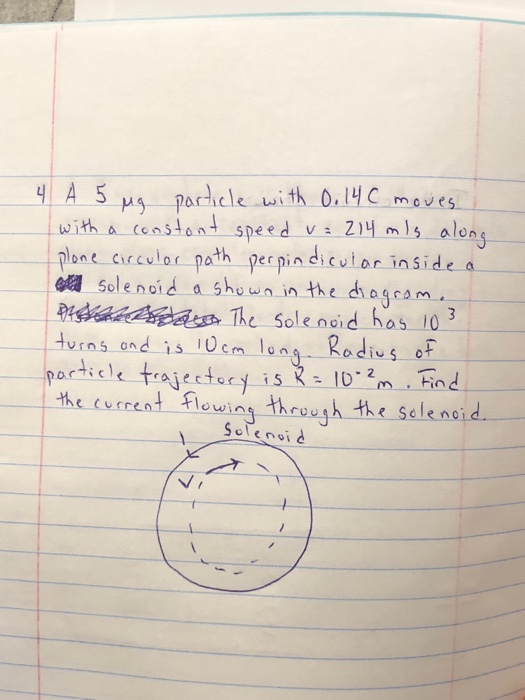 4 A 5 μg particle with 0.14C moves
with a constant speed v = 214 m/s along
plane circular path perpindicular inside a
solenoid a shown in the diagram.
The solenoid has 10³
turns and is 10cm long. Radius of
particle trajectory is R = 10⁻² m. Find
the current flowing through the solenoid.
Solenoid
V